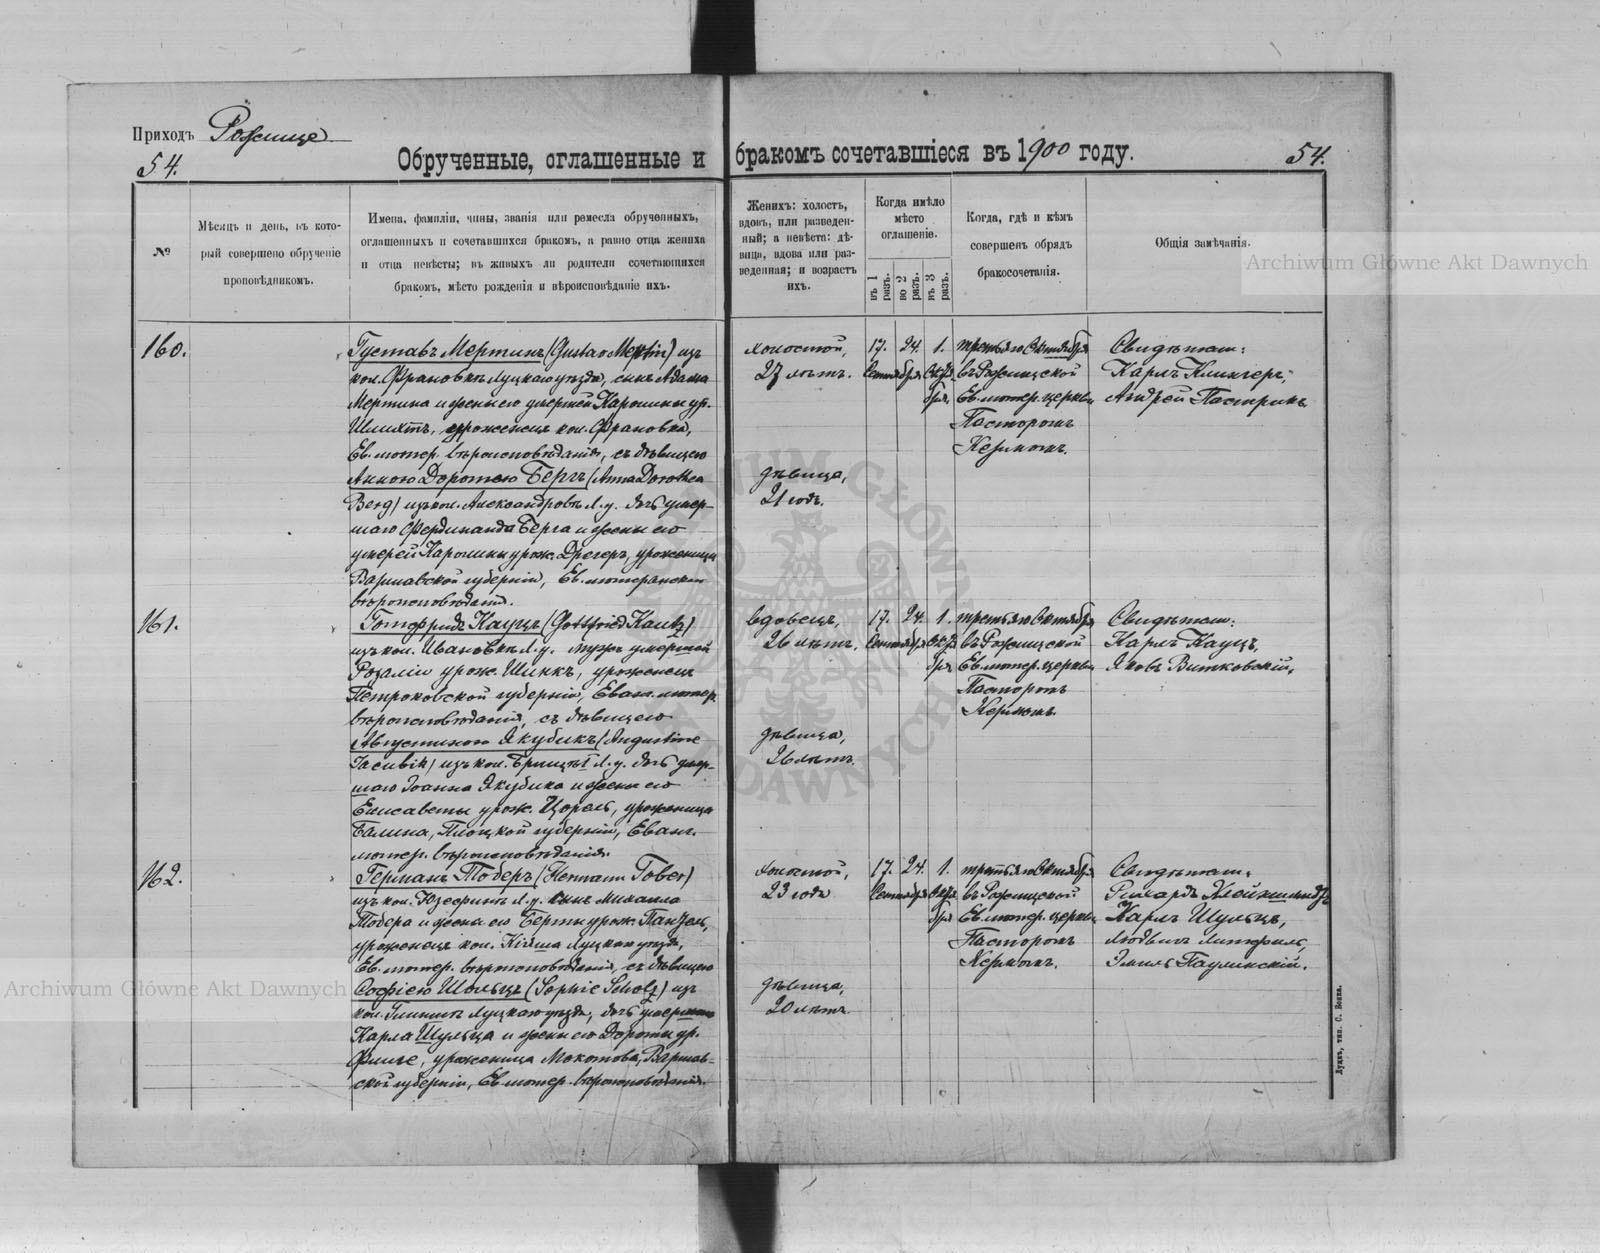 Приходъ Рожище
54.
Обрученные, оглашенные и бракомъ сочетавшіеся въ 1900 году.
54.
№
Мѣсяцъ и день, въ кото-
рый совершено обрученіе
проповѣдникомъ.
Имена, фамиліи, чины, званія или ремесла обрученныхъ,
оглашенныхъ и сочетавшихся бракомъ, а равно отца жениха
и отца невѣсты; въ живыхъ ли родители сочетающихся
бракомъ, мѣсто рожденія и вѣроисповѣданіе ихъ.
Женихъ: холостъ,
вдовъ, или разведен-
ный; а невѣста: дѣ-
вица, вдова или раз-
веденная; и возрастъ
ихъ.
Когда имѣло
мѣсто
оглашеніе.
въ 1 разъ.
во 2 разъ.
въ 3 разъ.
Когда, гдѣ и кѣмъ
совершенъ обрядъ
бракосочетанія.
Общія замѣчанія.
Archiwum Główne Akt Dawnych
160.
Густавъ Мертинъ (Gustav Mertin) изъ
кол. Францовка Луцкаго уѣзда, сынъ Адама
Мертина и жены его умершей Каролины ур.
Шлихтъ, уроженецъ кол. Францовка,
Ев. лютер. вѣроисповѣданія, съ дѣвицею
Анною Доротею Бергъ (Anna Dorothea
Berg) изъ кол. Александровка Л. у. дочь умер-
шаго Фердинанда Берга и жены его
умерей Каролины урож. Дрегеръ, уроженица
Варшавской губерніи, Ев. лютеранскаго
вѣроисповѣданія.
холостой,
27 лѣтъ.
дѣвица,
21 годъ.
17. 24. 1.
Сентября Октя-
бря.
третьяго Октября
въ Рожищской
Ев. лютер. церкви
Пасторомъ
Кермомъ.
Свидѣтели:
Карлъ Клингеръ,
Андрей Пастрикъ.
161.
Готфридъ Кауцъ (Gottfried Kautz)
изъ кол. Ивановка Л. у. мужъ умершей
Розаліи урож. Шинкъ, уроженецъ
Петроковской губерніи, Еванг. лютер.
вѣроисповѣданія, съ дѣвицею
Августиною Якубикъ (Augustine
Jacubik) изъ кол. Брищъ I Л. у. дочь умер-
шаго Іоанна Якубика и жены его
Елисаветы урож. Цорель, уроженица
Балина, Плоцкой губерніи, Еванг.
лютер. вѣроисповѣданія.
вдовецъ,
26 лѣтъ.
дѣвица,
26 лѣтъ.
17. 24. 1.
Сентября Октя-
бря
третьяго Октября
въ Рожищской
Ев. лютер. церкви
Пасторомъ
Кермомъ.
Свидѣтели:
Карлъ Кауцъ,
Яковъ Витковскій.
162.
Германъ Тоберъ (Hermann Tober)
изъ кол. Юзефинъ Л. у. сынъ Михаила
Тобера и жены его Берты урож. Панзель,
уроженецъ кол. Кіяша Луцкаго уѣзда,
Ев. лютер. вѣроисповѣданія, съ дѣвицею
Софіею Шольцъ (Sophie Scholz) изъ
кол. Глинищъ Луцкаго уѣзда, дочь умершаго
Карла Шульца и жены его Дороты ур.
Флиге, уроженица Мокотова, Варшав-
ской губерніи, Ев. лютер. вѣроисповѣданія.
холостой,
23 года
дѣвица,
20 лѣтъ.
17. 24. 1.
Сентября Октя-
бря
третьяго Октября
въ Рожищской
Ев. лютер. церкви
Пасторомъ
Кермомъ.
Свидѣтели:
Рихардъ
Карлъ Шульцъ,
Людвигъ
Эмиль Паулинскій.
Archiwum Główne Akt Dawnych
Луцкъ, тип. С. Бокка.